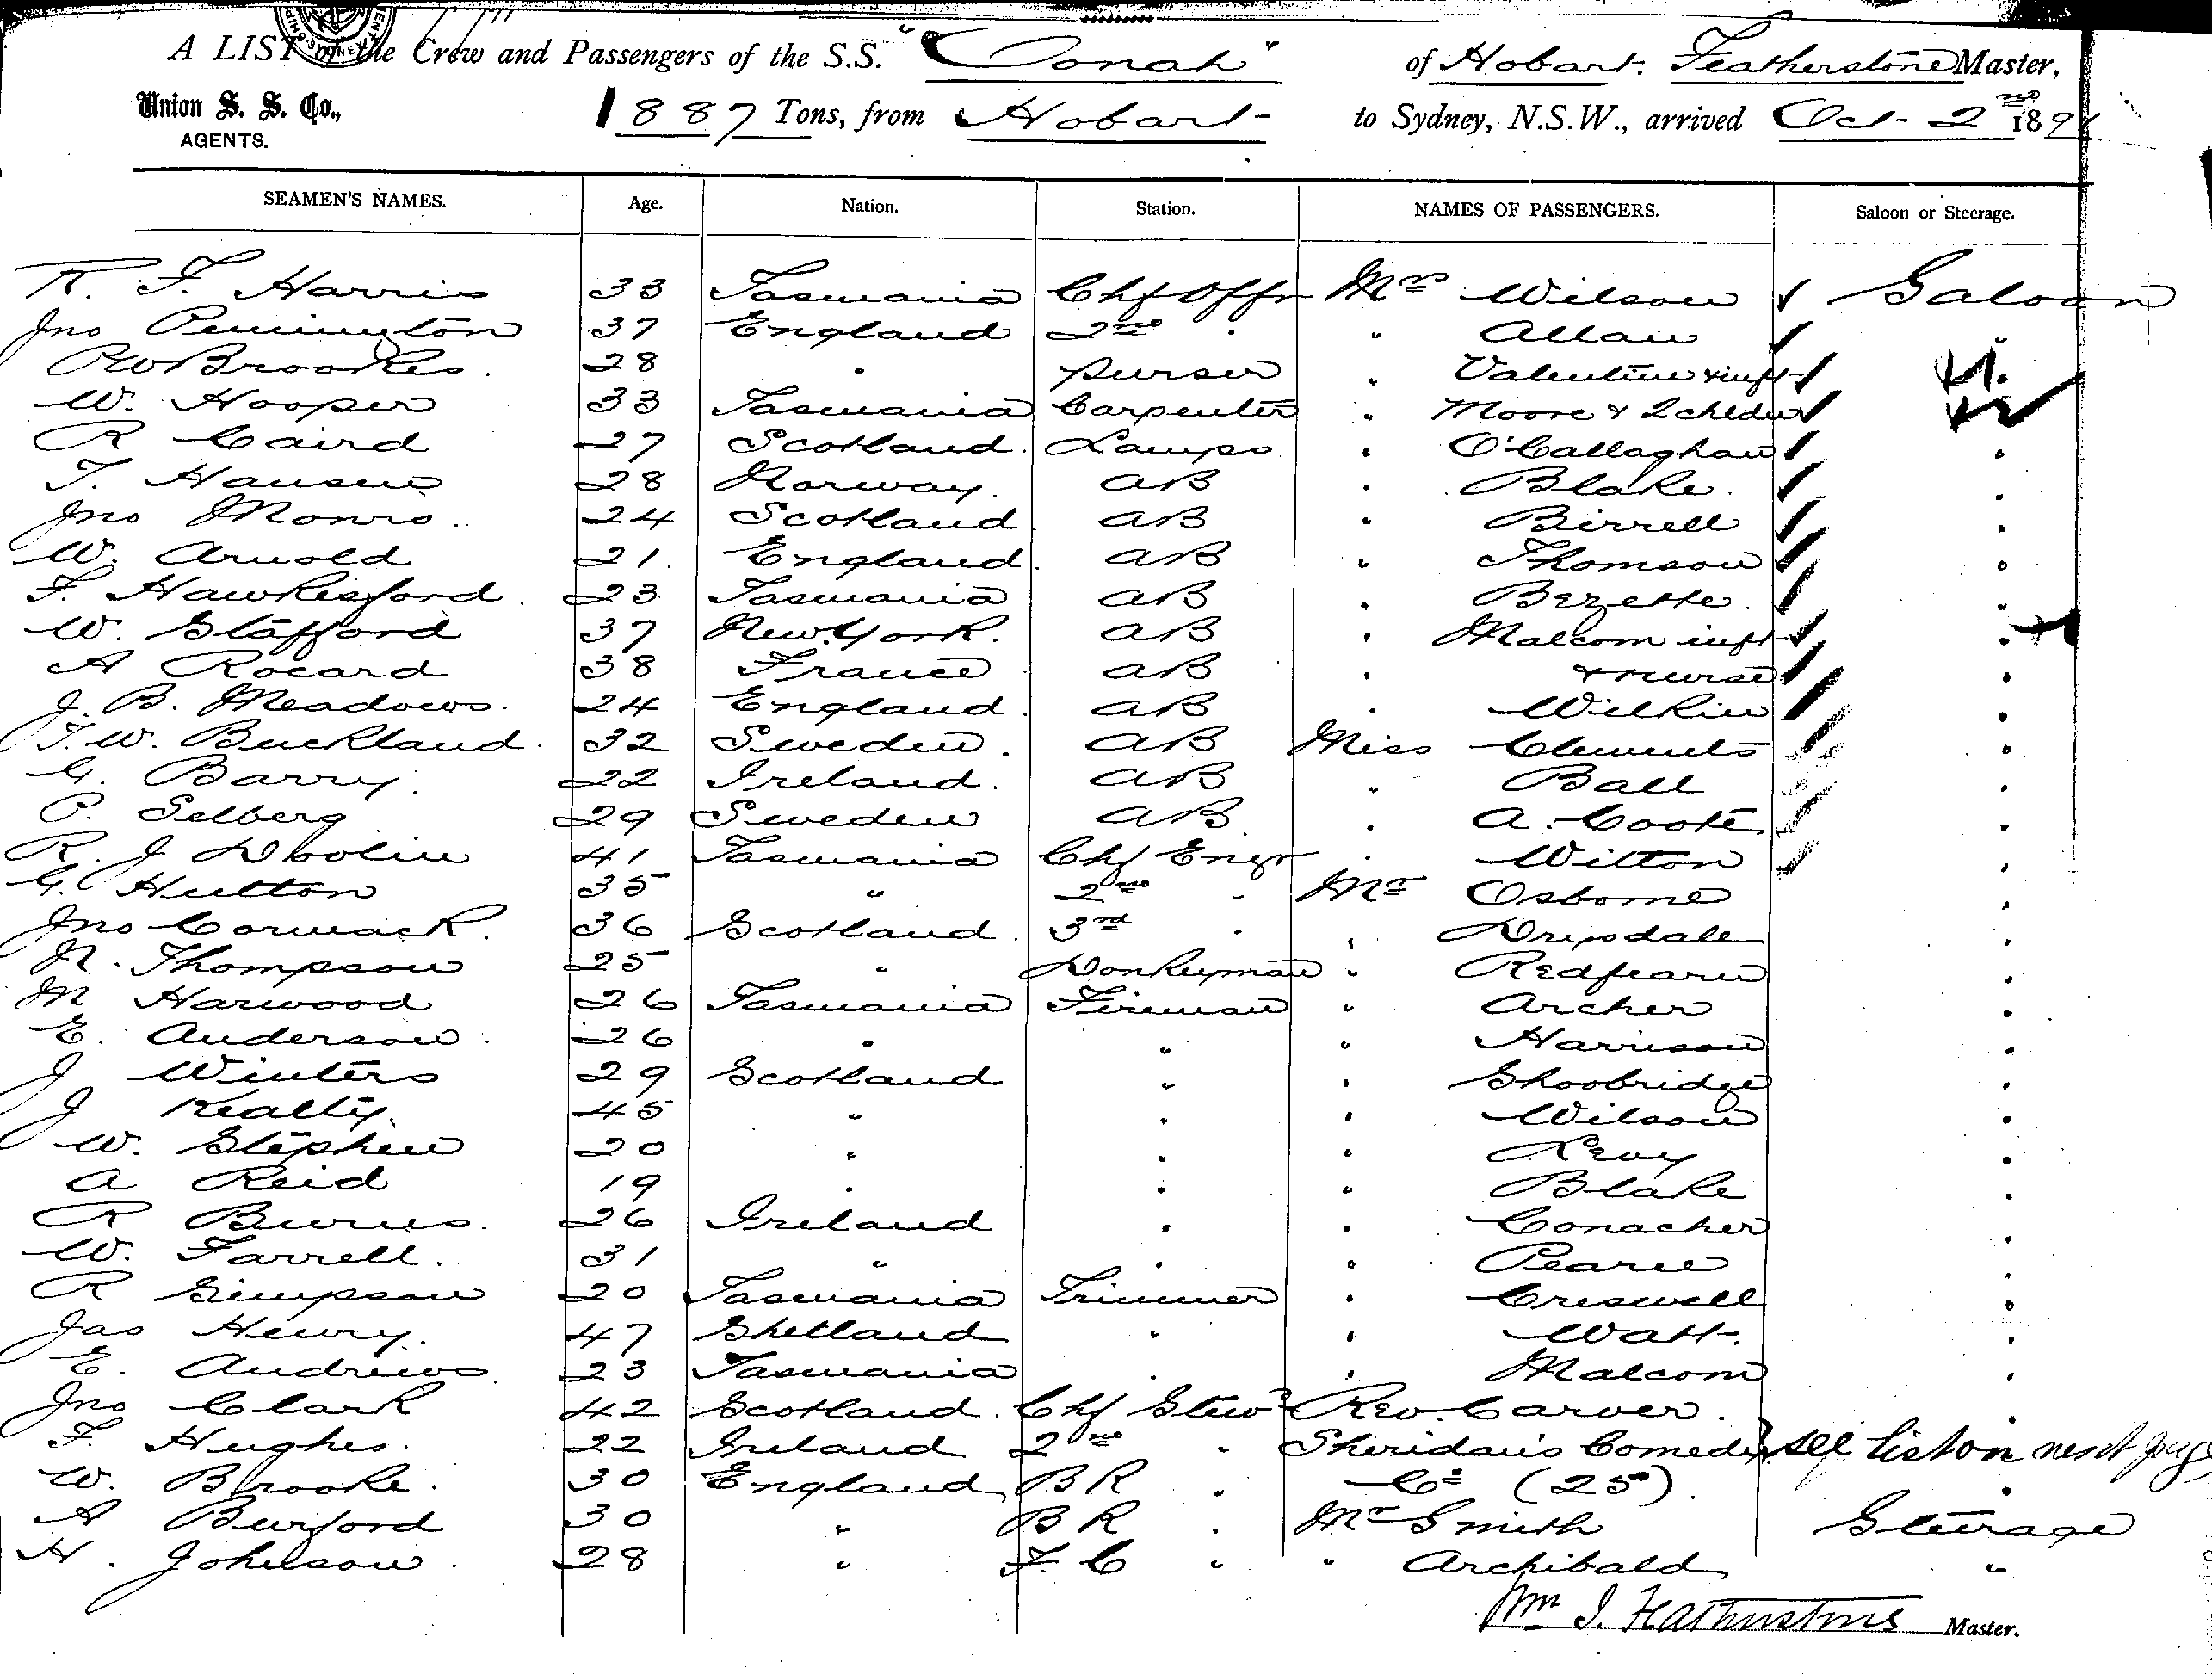 A LIST of the Crew and Passengers of the S.S. "Oonah" of Hobart. Featherstone Master,
Union S. S. Co., 1887 Tons, from Hobart to Sydney, N.S.W., arrived Oct 2nd 189
AGENTS.
SEAMEN'S NAMES. Age. Nation. Station. NAMES OF PASSENGERS. Saloon or Steerage.
R. F. Harris 33 Tasmania Chf Offr Mrs Wilson Saloon
Jno Pennington 37 England 2nd " " Allan "
RW Brookes. 28 " purser " Valentine & inft
W. Hooper 33 Tasmania Carpenter " Moore & 2 childn
R Caird 27 Scotland. Lamps " O'Callaghan "
T. Hansen 28 Norway. AB " Blake. "
Jno Monro. 24 Scotland AB " Birrell "
W. Arnold 21. England. AB " Thomson "
F. Hawkesford. 23 Tasmania AB " Bezette. "
W. Stafford 37 New York. AB " Malcom inft "
A Rocard 38 France AB " & nurse "
J. B. Meadows. 24 England. AB " Wilkin "
T. W. Buckland. 32 Sweden. AB Miss Clements "
G. Barry. 22 Ireland. AB " Ball "
P. Selberg 29 Sweden AB " A. Coote "
R. J Doolin 41 Tasmania Chf Engr " Wilton "
G. Hutton 35 " 2nd " Mr Osborne "
Jno Cormack. 36 Scotland. 3rd " " Drysdale "
N. Thompson 25 " Donkeyman " Redfearn "
M Harwood 26 Tasmania Fireman " Archer "
E. Anderson. 26 " " " Harrison "
J Winters 29 Scotland " " Shoobridge "
J Kealty. 45 " " " Wilson "
W. Stephen 20 " " " "
A Reid 19 " " " Blake "
R Burns. 26 Ireland " " Conacher "
W. Farrell. 31 " " " Pearce "
R Simpson 20 Tasmania Trimmer " Creswell "
Jas Henry. 47 Shetland " " Watt. "
E. Andrews. 23 Tasmania " " Malcom "
Jno Clark 42 Scotland. Chf Stewd Rev. Carver. "
F. Hughes. 22 Ireland 2nd " Sheridan's Comedy } see list on next page
W. Brooke. 30 England BR " Co (25). "
A Burford 30 " BR " Mr Smith Steerage
H. Johnson. 28 " F. C " " Archibald "
Wm J. Featherstone Master.